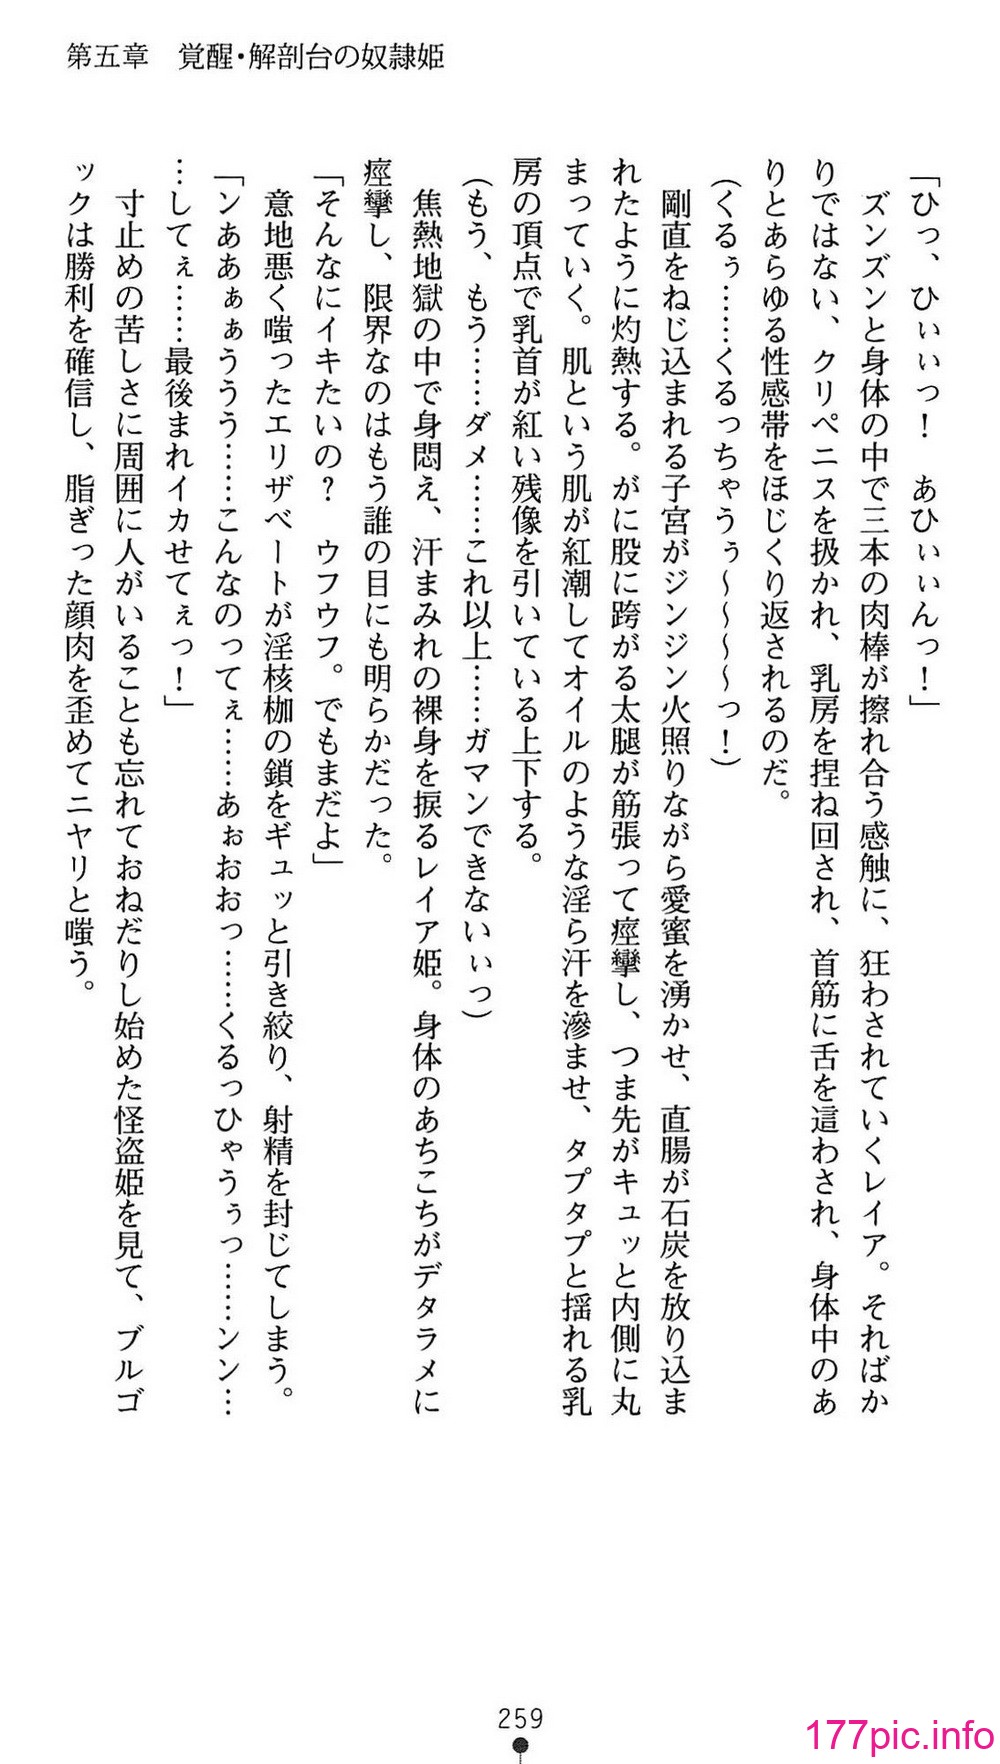 第五章　覚醒・解剖台の奴隷姫
「ひっ、ひぃぃっ！　あひぃぃんっ！」
　ズンズンと身体の中で三本の肉棒が擦れ合う感触に、狂わされていくレイア。そればか
りではない、クリペニスを扱かれ、乳房を捏ね回され、首筋に舌を這わされ、身体中のあ
りとあらゆる性感帯をほじくり返されるのだ。
（くるぅ……くるっちゃうぅ～～～～っ！）
　剛直をねじ込まれる子宮がジンジン火照りながら愛蜜を湧かせ、直腸が石炭を放り込ま
れたように灼熱する。がに股に跨がる太腿が筋張って痙攣し、つま先がキュッと内側に丸
まっていく。肌という肌が紅潮してオイルのような淫ら汗を滲ませ、タプタプと揺れる乳
房の頂点で乳首が紅い残像を引いている上下する。
（もう、もう……ダメ……これ以上……ガマンできないぃっ）
　焦熱地獄の中で身悶え、汗まみれの裸身を捩るレイア姫。身体のあちこちがデタラメに
痙攣し、限界なのはもう誰の目にも明らかだった。
「そんなにイキたいの？　ウフウフ。でもまだよ」
　意地悪く嗤ったエリザベートが淫核枷の鎖をギュッと引き絞り、射精を封じてしまう。
「ンああぁぁううう……こんなのってぇ……あぉおおっ……くるっひゃうぅっ……ンン…
…してぇ……最後まれイカせてぇっ！」
　寸止めの苦しさに周囲に人がいることも忘れておねだりし始めた怪盗姫を見て、ブルゴ
ックは勝利を確信し、脂ぎった顔肉を歪めてニヤリと嗤う。
259
177pic.info